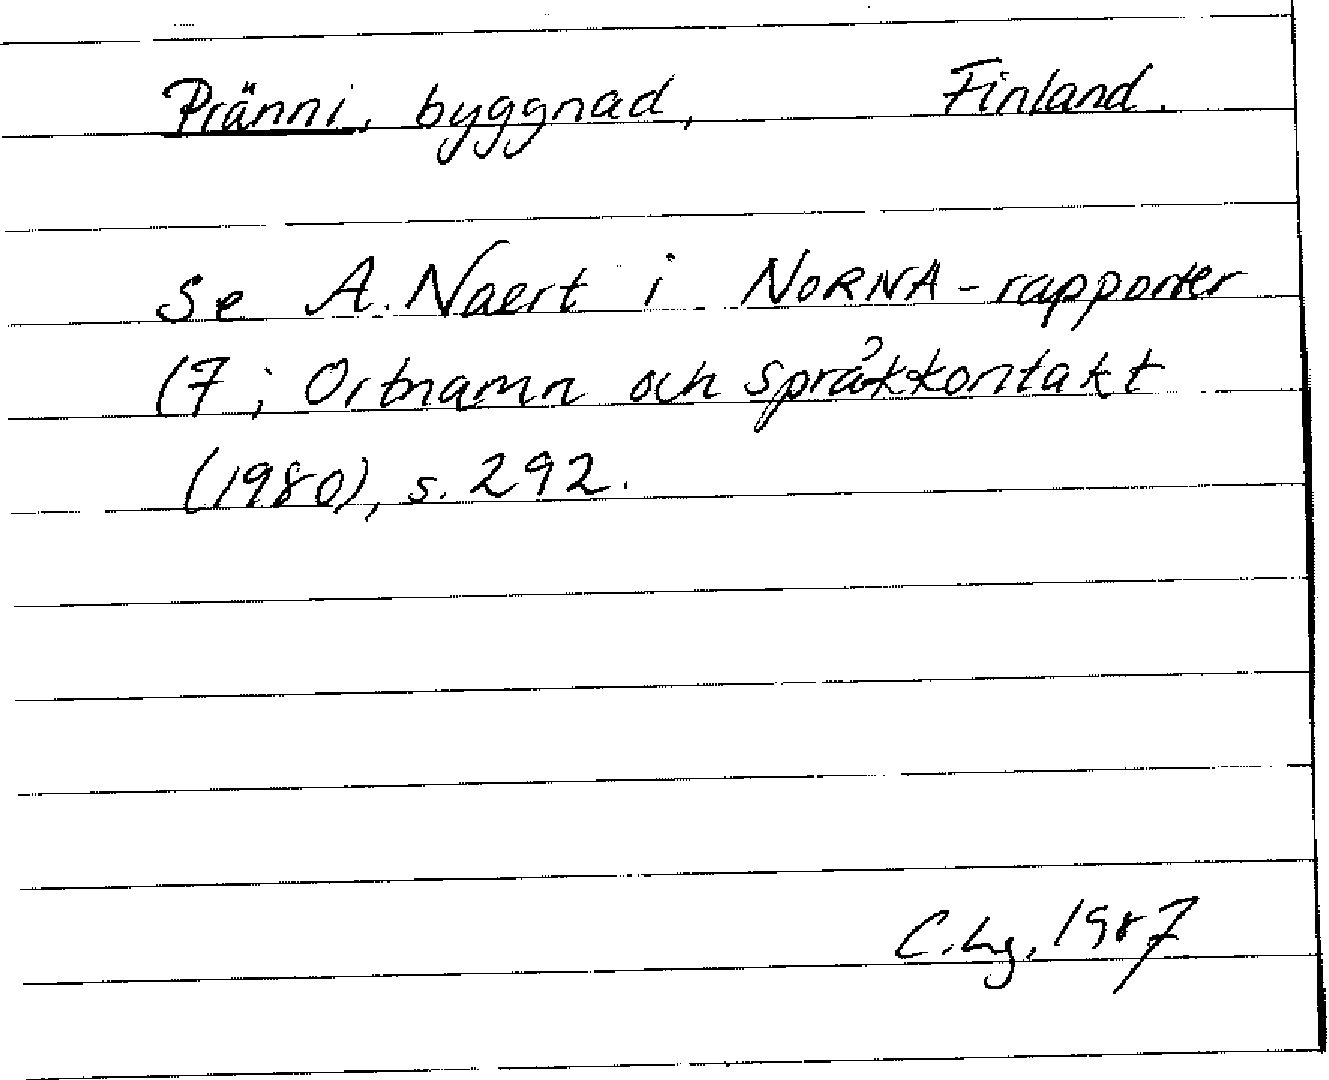 Pränni, byggnad, Finland.
Se A. Naert i NORNA-rapporter
17; Ortnamn och språkkontakt
(1980), s. 292.
C. Lg, 1987